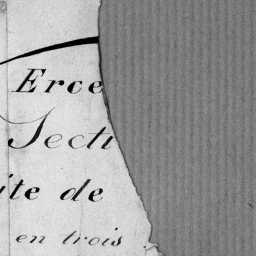 Erce
Secti
ite de
en trois